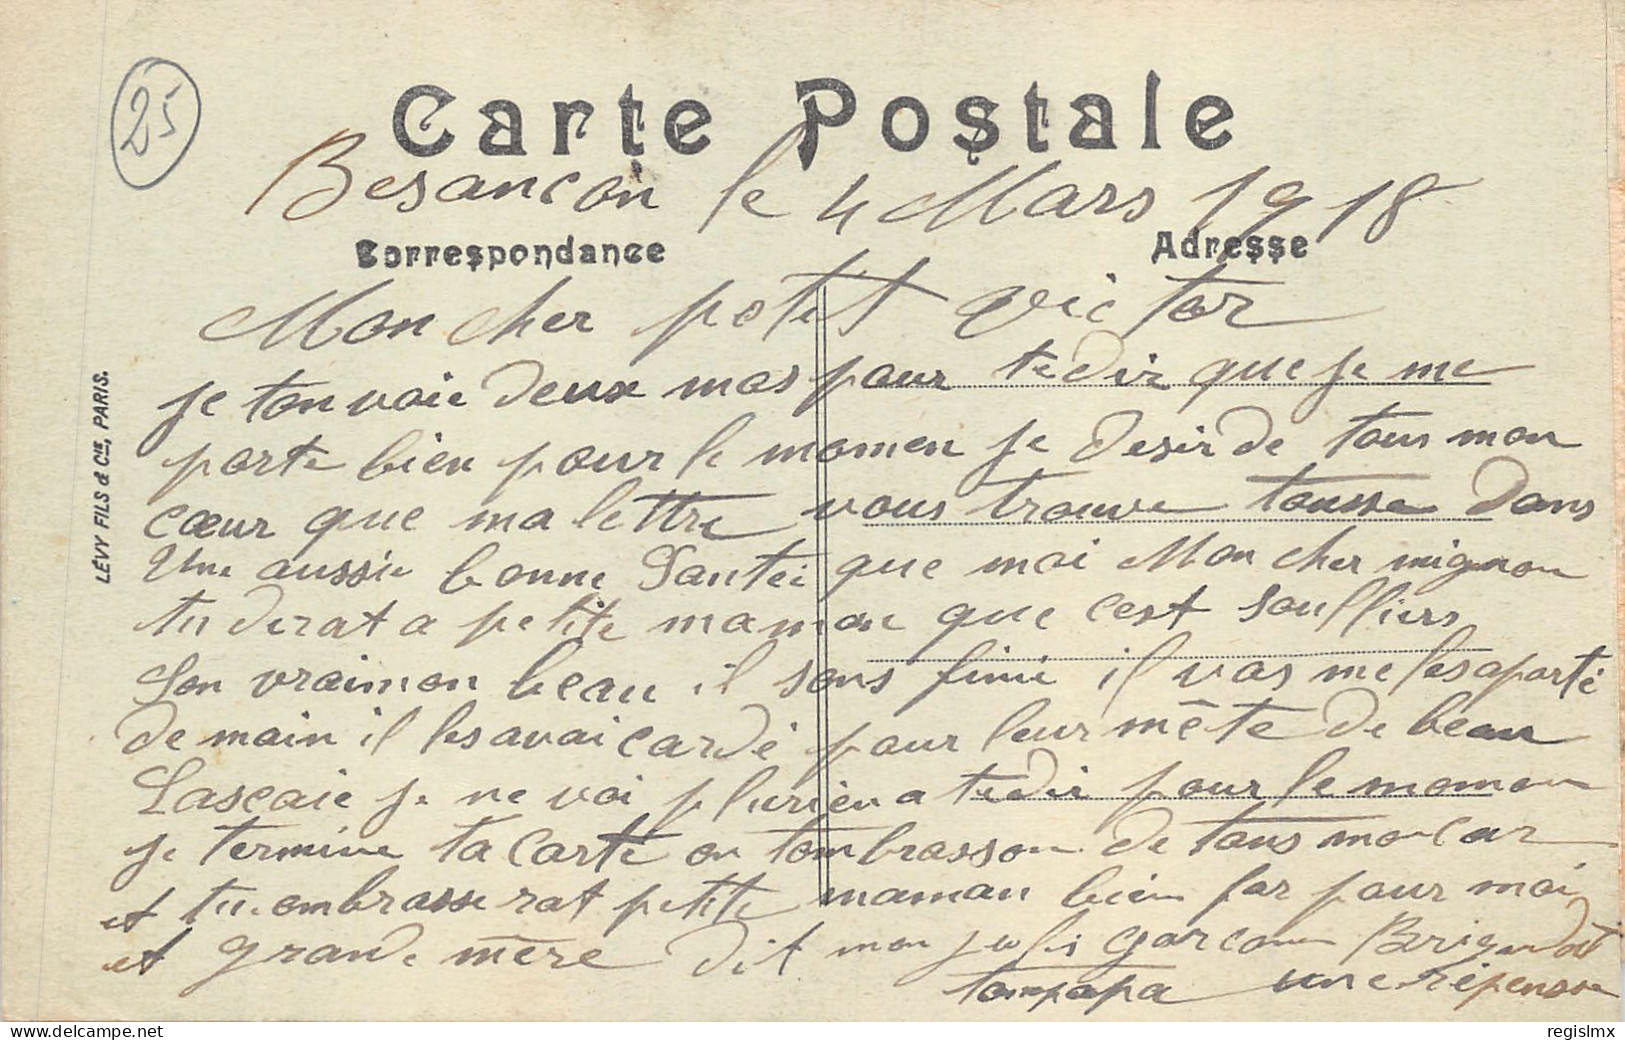 25
Carte Postale
Besancon le 4 Mars 1918
Correspondance
Adresse
Mon cher petit Victor
je tonvoie deux mos pour tedir que je me
porte bien pour le momen je desir de tous mon
cœur que ma lettre vous trouve tousse dans
une aussie bonne Santei que moi Mon cher mignon
tu derat a petite maman que c'est soulliers
son vraimon beau il sons finie il vas me lesaporté
de main il lesavai cardé pour leur mête de beau
Lascaie je ne voi plurien a tedir pour le momen
je termine ta carte on tombrasson de tous mon cœur
et tu ombrasse rat petite maman bien for pour moi
et grande mère dit mon jolis garcon
tompapa une réponse
LÉVY FILS & CIE, PARIS.
delcampe.net
regislmx